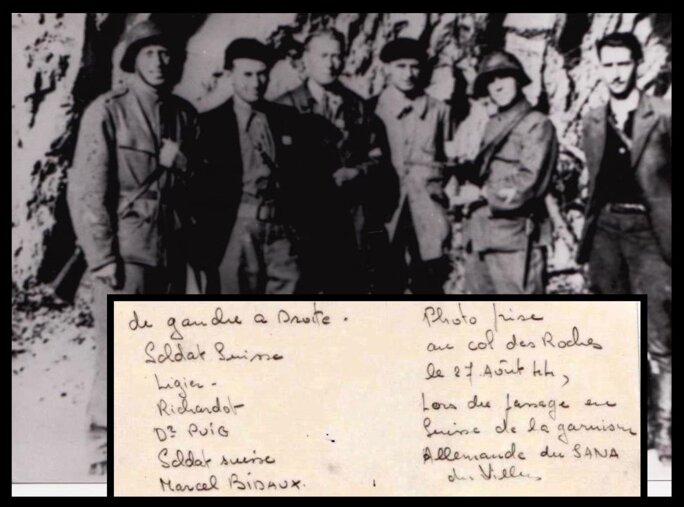 de gauche a Droite.
Soldat Suisse
Ligier -
Richardot
Dr PUIG
Soldat suisse
Marcel BIDAUX.
Photo prise
au col des Roches
le 27 Août 44,
Lors du passage en
Suisse de la garnison
Allemande du SANA
des Villers